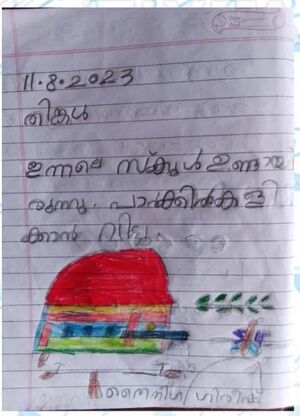 11.8.2023
തിങ്കൾ
ഇന്നലെ സ്കൂൾ ഉണ്ടായ
രുന്നു. പാർക്കിൽ കളി
ക്കാൻ വിട്ടു.
നൈനിഗ ഗിരീഷ്